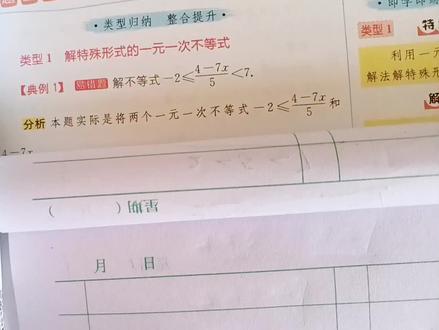 ·类型归纳 整合提升·
类型1 解特殊形式的一元一次不等式
【典例1】 易错题 解不等式 −2≤(4−7x)/5<7.
分析 本题实际是将两个一元一次不等式 −2≤(4−7x)/5 和
4−7x
类型1 特
利用一
解法解特殊形
解
星期（ ）
月 日